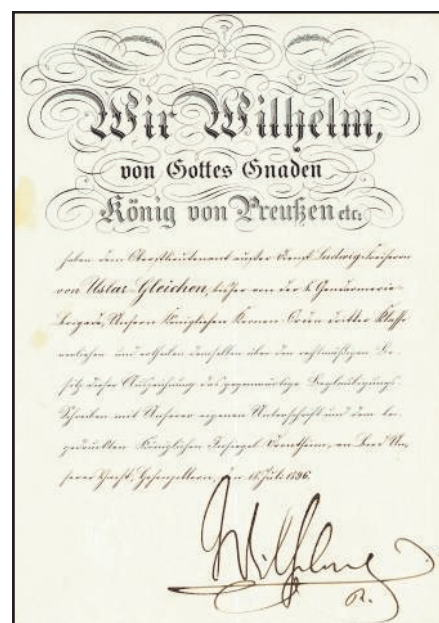 Wir Wilhelm,
von Gottes Gnaden
König von Preußen etc:
haben dem Oberstlieutenant außer Dienst Ludwig Freiherrn
von Uslar-Gleichen, bisher von der 6. Gendarmerie-
Brigade, Unsern Königlichen Kronen-Orden dritter Klasse
verliehen und ertheilen demselben über den rechtmäßigen Be-
sitz dieser Auszeichnung das gegenwärtige Beglaubigungs-
Schreiben mit Unserer eigenen Unterschrift und dem bei-
gedruckten Königlichen Insiegel. Drontheim, an Bord Un-
serer Yacht, Hohenzollern, den 18. Juli 1896.
Wilhelm
R.